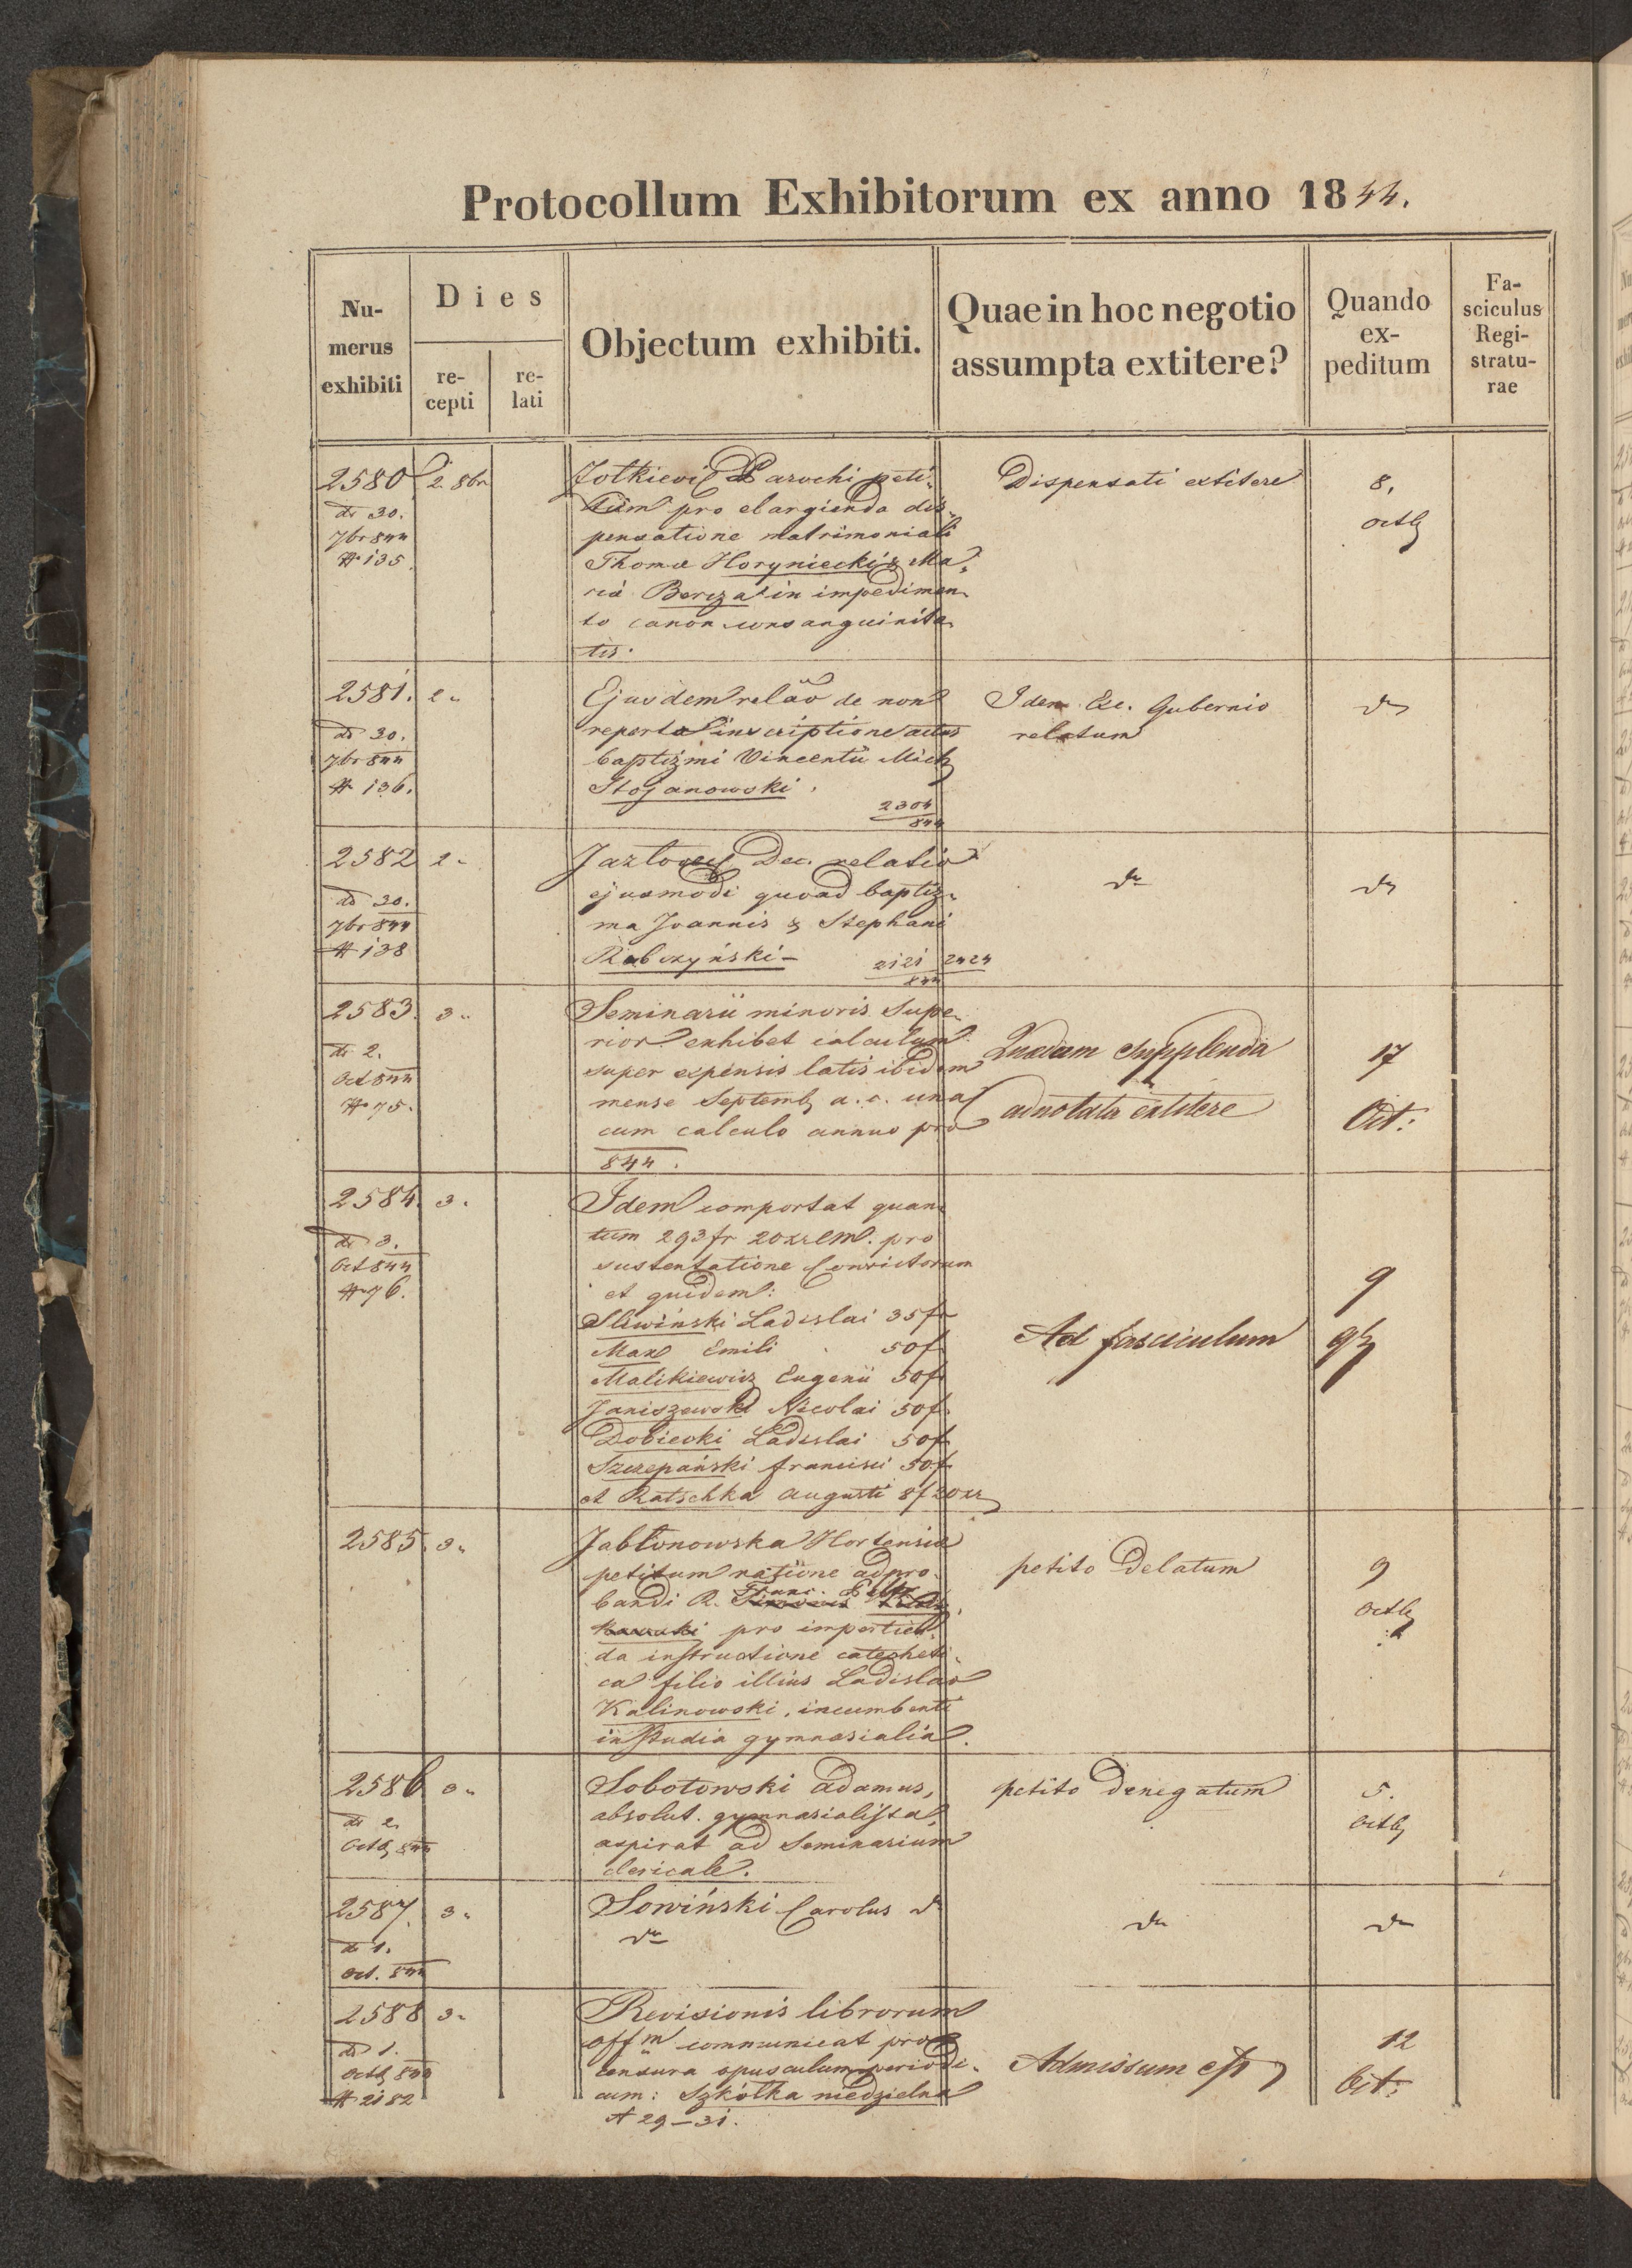 Protocollum Exhibitorum ex anno 1844.
Nu-
merus
exhibiti
Dies
re-
cepti
re-
lati
Objectum exhibiti.
Quae in hoc negotio
assumpta extitere?
Quando
ex-
peditum
Fa-
sciculus
Regi-
stratu-
rae
2580 2. 8br
dt 30.
7br 844
# 135
Parochi peti-
tum pro elargienda dis-
pensatione matrimoniali
Thomæ Horyniecki & Ma-
ria Bereza in impedimen-
to canon consanguinita-
tis.
Dispensati extitere
8.
octb
2581. 2.
dt 30.
7br 844
# 136.
Ejusdem relāo de non
reperta inscriptione actus
baptizmi Vincentii Mich
Stojanowski.
2304
844
Idem Exc. Gubernio
relatum
do
2582 2.
dt 30.
7br 844
# 138
Jazłovec Dec. relatio
ejusmodi quoad baptiz-
ma Joannis & Stephani
Rabczyński -
2121 2424
844
do
do
2583. 3.
dt 2.
Oct 844
# 75.
Seminarii minoris Supe-
rior exhibet calculum
super expensis latis ibidem
mense Septemb a. c. una
cum calculo annuo pro
844.
Quædam supplenda
adnotata extitere
17
Oct:
2584. 3.
dt 3.
Oct 844
# 76.
Idem comportat quan-
tum 293 fr 20 xr CM. pro
sustentatione Convictorum
et quidem:
Sliwiński Ladislai 35 fr
Max Emili 50 f
Malikiewicz Eugenii 50 f
Janiszewski Nicolai 50 f
Dobiecki Ladislai 50 f
Szczepański Francisci 50 f
et Ratschka Augusti 8 f 20 xr
Ad fasciculum
9
2585. 3.
Jabłonowska Hortensia
petitum ratione adpro-
bandi R. Franc.
pro impertien-
da instructione catecheti-
ca filio illius Ladislao
Kalinowski, incumbenti
in studia gymnasialia.
petito delatum
9
octb
2586 3.
dt 2.
Octb 844
Sobotowski Adamus,
absolut. gymnasialista,
aspirat ad Seminarium
clericale.
petito denegatum
5.
octb
2587. 3.
dt 1.
Oct. 844
Sowiński Carolus do
do
do
do
2588 3.
dt 1.
octb 844
# 2182
Revisionis librorum
offm communicat pro
censura opusculum periodi-
cum: Szkółka niedzielna
N 29-31.
Admissum est
12
Oct: